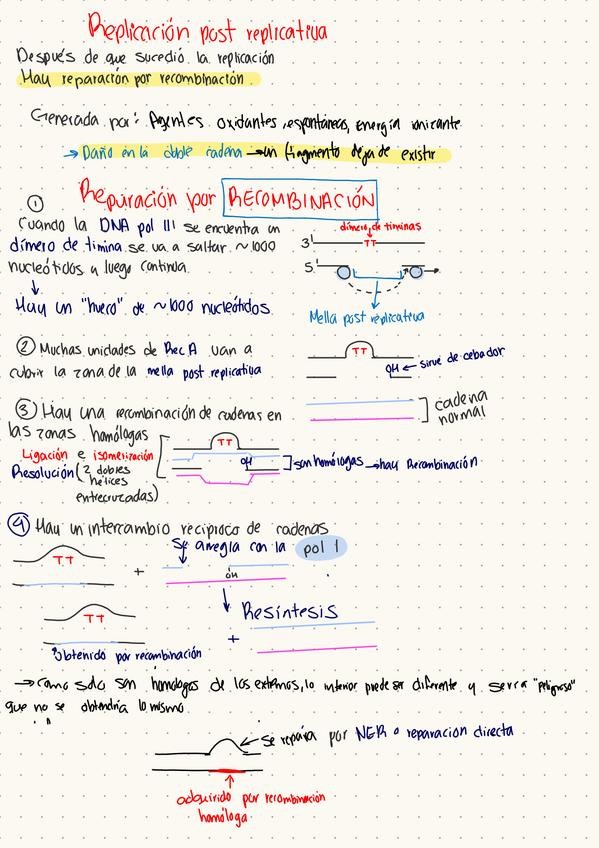 Replicación post replicativa
Después de que sucedió la replicación
Hay reparación por recombinación.
Generada por: Agentes oxidantes, espontáneos, energía ionizante
→ Daño en la doble cadena → un fragmento deja de existir
Reparación por RECOMBINACIÓN
①
Cuando la DNA pol III se encuentra un
dímero de timina se va a saltar ~1000
nucleótidos y luego continua.
↓
Hay un "hueco" de ~1000 nucleótidos
dímero de timinas
3' TT
5'
Mella post replicativa
② Muchas unidades de Rec A van a
cubrir la zona de la mella post replicativa
TT
OH ← sirve de cebador
cadena
normal
③ Hay una recombinación de cadenas en
las zonas homólogas
Ligación e isomerización
Resolución (2 dobles
hélices
entrecruzadas)
TT
OH
son homólogas → hay Recombinación
④ Hay un intercambio reciproco de cadenas
Se arregla con la pol I
TT + OH
Resíntesis
TT +
Obtenido por recombinación
→ Como solo son homologos de los extremos, lo interior puede ser diferente y sería "peligroso"
que no se obtendría lo mismo
se repara por NER o reparacion directa
adquirido por recombinación
homóloga.